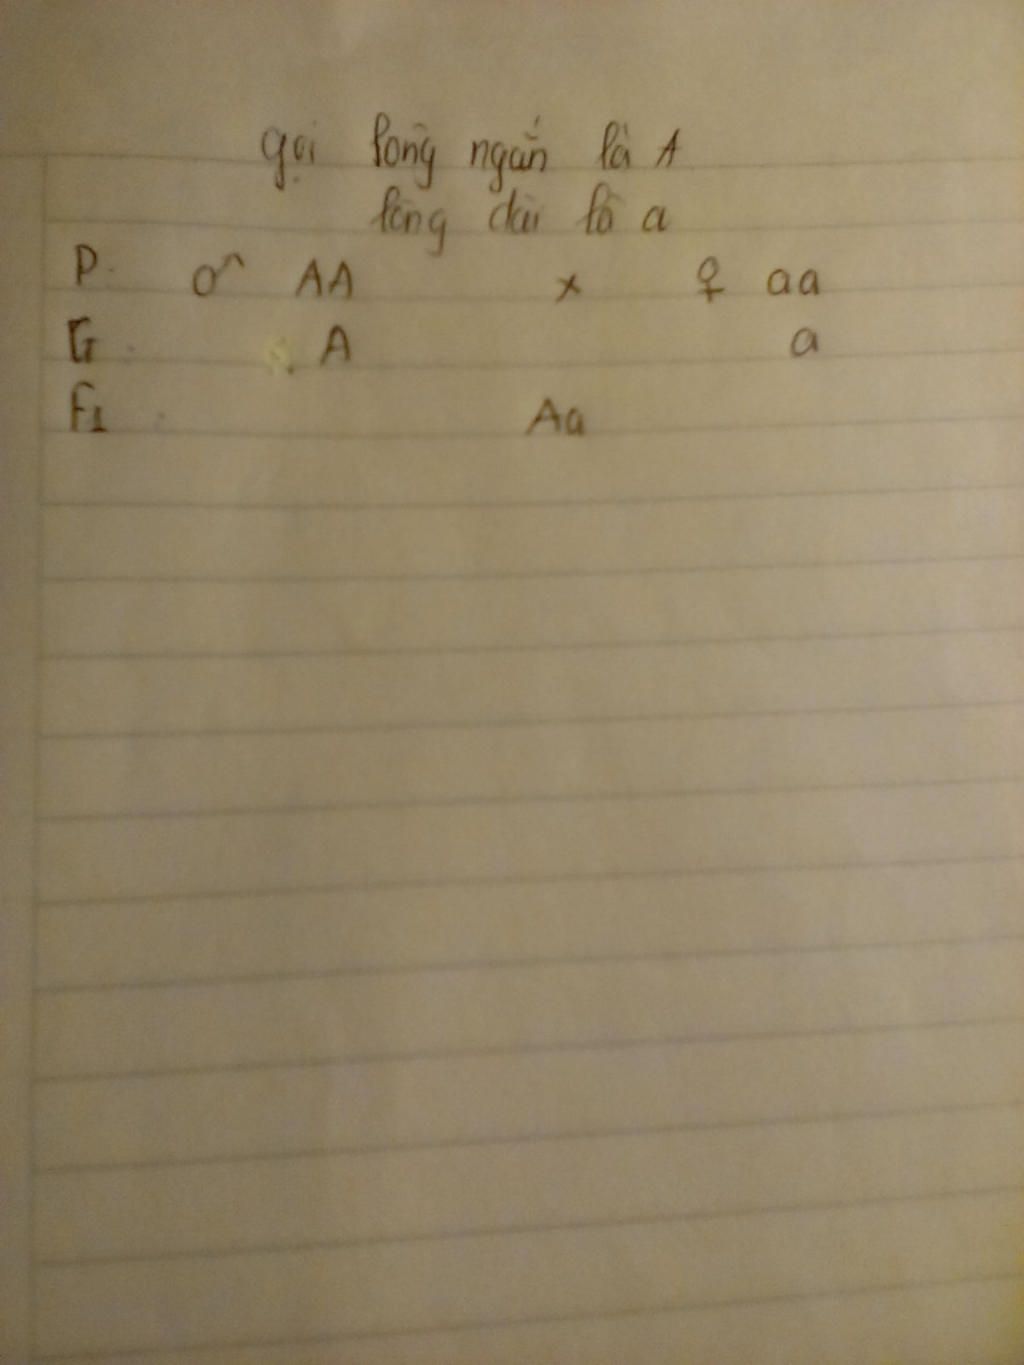 gọi lông ngắn là A
lông dài là a
P. ♂ AA x ♀ aa
G : A a
F1 : Aa